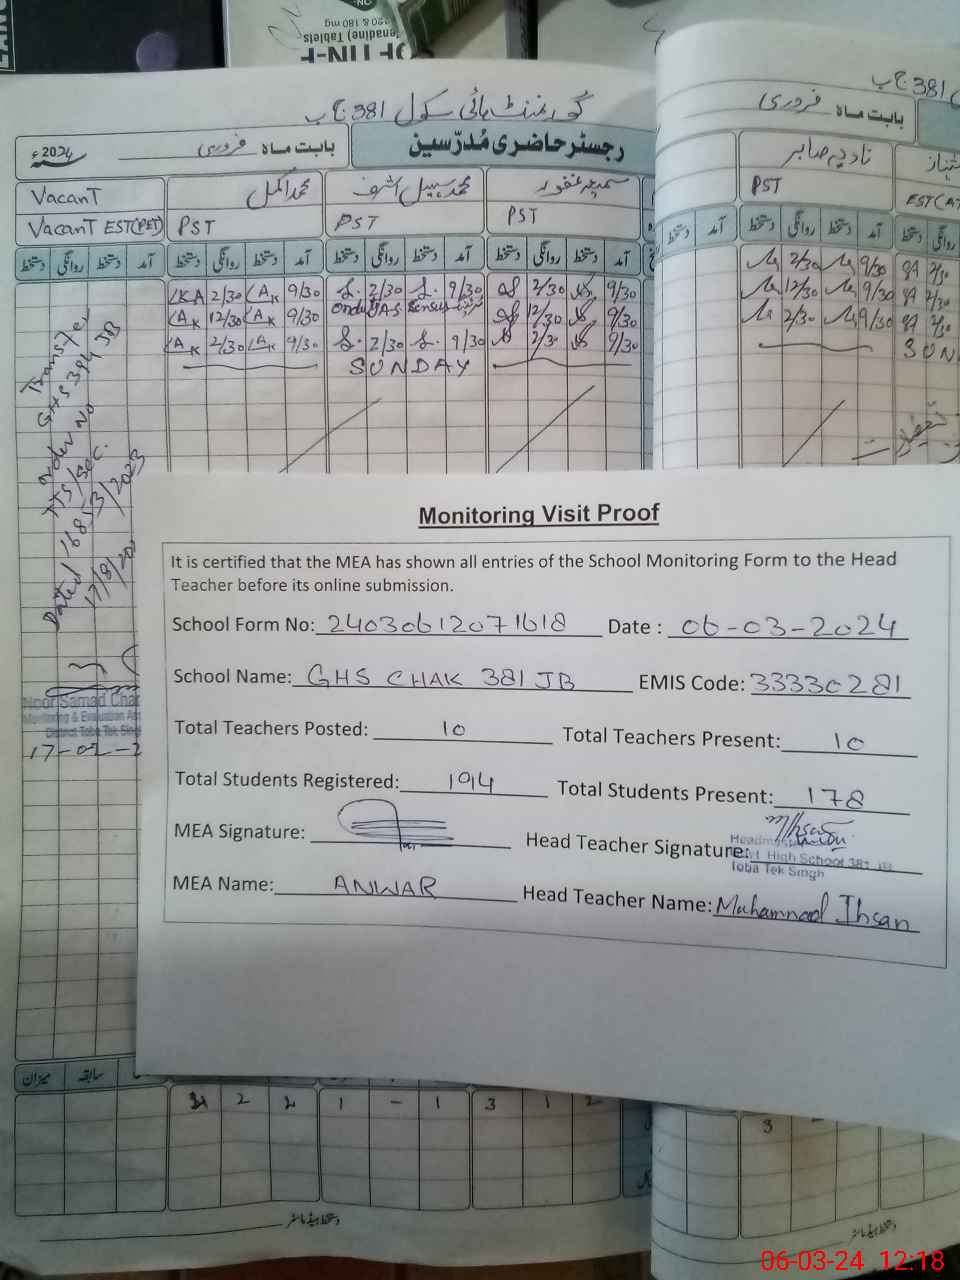 220 & 180 mg
enadine) Tablets
گورنمنٹ ہائی سکول 381 ج ب
381 ج ب
رجسٹر حاضری مُدرّسین
بابت ماہ فروری
2024ء
بابت ماہ فروری
Vacant
محمد اکمل
محمد سہیل اشرف
سمعیہ غفور
نادیہ صابر
Vacant EST(PET)
PST
PST
PST
PST
EST(A
دستخط روانگی دستخط آمد دستخط روانگی دستخط آمد دستخط روانگی دستخط آمد دستخط روانگی دستخط آمد
دستخط آمد دستخط روانگی دستخط آمد دستخط روانگی
2/30 9/30 2/30 9/30 2/30 9/30 2/30 9/30 2/30
12/30 9/30 12/30 9/30 12/30 9/30 2/30
2/30 9/30 2/30 9/30 2/30 9/30 2/30 9/30 2/30
SUNDAY
SUN
Transfer
GHS 394 JB
order No
Dated 16853/2023
17/8/20
Noor Samad Char
Monitoring & Evaluation As
District Toba Tek Sing
17-02-2
Monitoring Visit Proof
It is certified that the MEA has shown all entries of the School Monitoring Form to the Head
Teacher before its online submission.
School Form No: 24030612071618 Date : 06-03-2024
School Name: GHS CHAK 381 JB EMIS Code: 33330281
Total Teachers Posted: 10 Total Teachers Present: 10
Total Students Registered: 194 Total Students Present: 178
MEA Signature: Head Teacher Signature:
Headmaster
Govt High School 381 JB
Toba Tek Singh
MEA Name: ANWAR Head Teacher Name: Muhammad Ihsan
میزان سابقہ
2 2 1 - 1 3 1 2
3
دستخط ہیڈ ماسٹر
دستخط ہیڈ ماسٹر
06-03-24 12:18